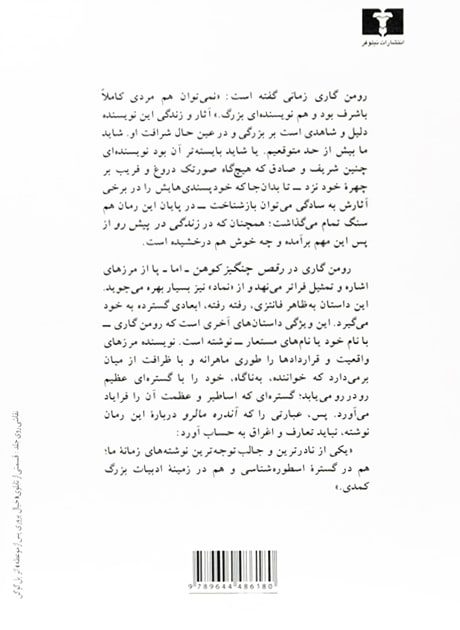 انتشارات نیلوفر
رومن گاری زمانی گفته است: «نمی‌توان هم مردی کاملاً
باشرف بود و هم نویسنده‌ای بزرگ.» آثار و زندگی این نویسنده
دلیل و شاهدی است بر بزرگی و در عین حال شرافت او. شاید
ما بیش از حد متوقعیم. یا شاید بایسته‌تر آن بود نویسنده‌ای
چنین شریف و صادق که هیچ‌گاه صورتک دروغ و فریب بر
چهرهٔ خود نزد ــ تا بدان‌جا که خودپسندی‌هایش را در برخی
آثارش به سادگی می‌توان بازشناخت ــ در پایان این رمان هم
سنگ تمام می‌گذاشت؛ همچنان که در زندگی در پیش رو از
پس این مهم برآمده و چه خوش هم درخشیده است.
رومن گاری در رقص چنگیز کوهن ــ اما ــ پا از مرزهای
اشاره و تمثیل فراتر می‌نهد و از «نماد» نیز بسیار بهره می‌جوید.
این داستان به‌ظاهر فانتزی، رفته رفته، ابعادی گسترده به خود
می‌گیرد. این ویژگی داستان‌های آخری است که رومن گاری ــ
با نام خود یا نام‌های مستعار ــ نوشته است. نویسنده مرزهای
واقعیت و قراردادها را طوری ماهرانه و با ظرافت از میان
برمی‌دارد که خواننده، به‌ناگاه، خود را با گستره‌ای عظیم
رودررو می‌یابد؛ گستره‌ای که اساطیر و عظمت آن را فرایاد
می‌آورد. پس، عبارتی را که آندره مالرو دربارهٔ این رمان
نوشته، نباید تعارف و اغراق به حساب آورد:
«یکی از نادرترین و جالب توجه‌ترین نوشته‌های زمانهٔ ما؛
هم در گسترهٔ اسطوره‌شناسی و هم در زمینهٔ ادبیات بزرگ
کمدی.»
نقاشی روی جلد: قسمتی از تابلوی «خیال پروری پس از موعظه» اثر پل گوگن
9789644486180